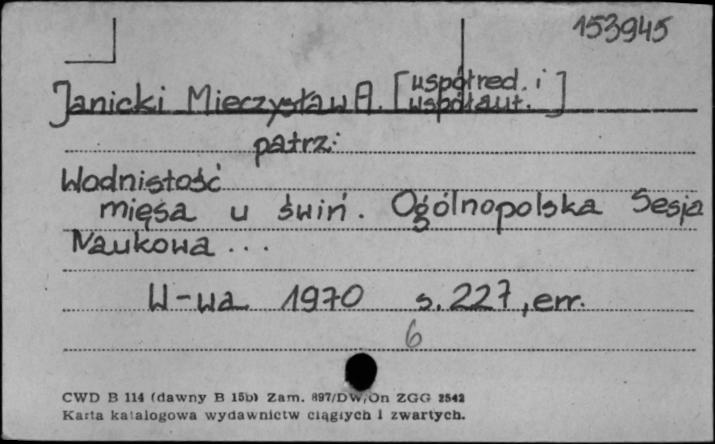 153945
Janicki Mieczysław A. [współred. i współaut.]
patrz:
Wodnistość
mięsa u świń. Ogólnopolska Sesja
Naukowa ...
W-wa 1970 s. 227, err.
6
CWD B 114 (dawny B 15b) Zam. 897/DW/On ZGG 2542
Karta katalogowa wydawnictw ciągłych i zwartych.